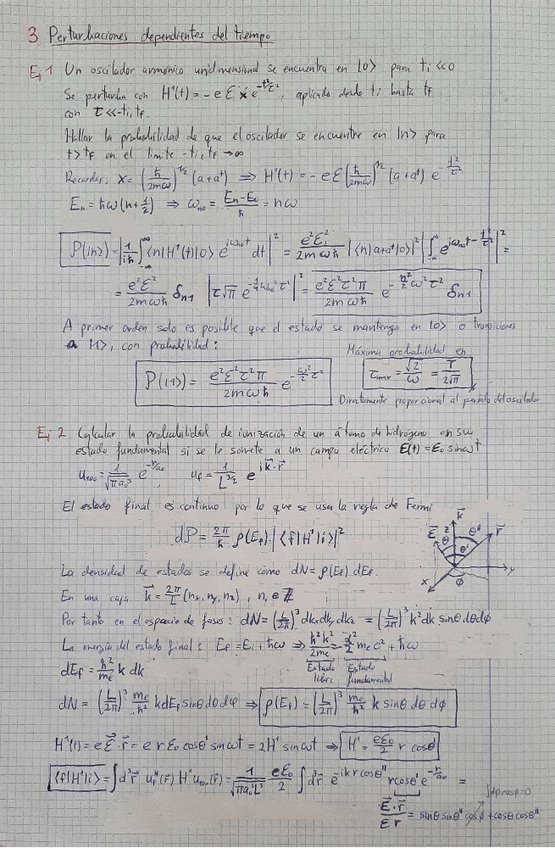 3 Perturbaciones dependientes del tiempo
Ej 1 Un oscilador armónico unidimensional se encuentra en |0> para ti << 0
Se perturba con H'(t) = -e ℰ x e^{-t²/τ²}, aplicada desde ti hasta tf
con τ << -ti, tf.
Hallar la probabilidad de que el oscilador se encuentre en |n> para
t > tf en el límite -ti, tf → ∞
Recordar: x = (ħ/2mω)^{1/2} (a+a†) ⇒ H'(t) = -eℰ (ħ/2mω)^{1/2} (a+a†) e^{-t²/τ²}
En = ħω(n+1/2) ⇒ ωno = (En-Eo)/ħ = nω
P(|n>) = |1/iħ ∫_{-∞}^{∞} <n|H'(t)|0> e^{iωno t} dt|² = e²ℰ²/2mωħ |<n|a+a†|0>|² |∫ e^{iωno t - t²/τ²}|² =
= e²ℰ²/2mωħ δn1 |τ√π e^{-1/4 ωno² τ²}|² = e²ℰ²τ²π/2mωħ e^{-n²/2 ω²τ²} δn1
A primer orden solo es posible que el estado se mantenga en |0> o transiciones
a |1>, con probabilidad:
P(|1>) = e²ℰ²τ²π/2mωħ e^{-ω²/2 τ²}
Máxima probabilidad en
τmax = √2/ω = T/2√π
Directamente proporcional al período del oscilador
Ej 2 Calcular la probabilidad de ionización de un átomo de hidrógeno en su
estado fundamental si se le somete a un campo eléctrico E(t) = E₀ sinωt
u₁₀₀ = 1/√(πa₀³) e^{-r/a₀} uf = 1/L^{3/2} e^{i k⃗·r⃗}
El estado final es continuo por lo que se usa la regla de Fermi
dP = 2π/ħ ρ(Ef) |<f|H'|i>|²
La densidad de estados se define como dN = ρ(Ef) dEf
En una caja k⃗ = 2π/L (nx, ny, nz), ni ∈ ℤ
Por tanto en el espacio de fases: dN = (L/2π)³ dkx dky dkz = (L/2π)³ k² dk sinθ dθ dφ
La energía del estado final: Ef = Ei + ħω ⇒ ħ²k²/2me = α²/2 me c² + ħω
Estado libre Estado fundamental
dEf = ħ²/me k dk
dN = (L/2π)³ me/ħ² k dEf sinθ dθ dφ ⇒ ρ(Ef) = (L/2π)³ me/ħ² k sinθ dθ dφ
H'(t) = e E⃗·r⃗ = e r E₀ cosθ' sinωt = 2H' sinωt ⇒ H' = eE₀/2 r cosθ'
<f|H'|i> = ∫d³r⃗ uf*(r⃗) H' u₁₀₀(r⃗) = 1/√(πa₀³L³) eE₀/2 ∫d³r⃗ e^{-ikr cosθ''} r cosθ' e^{-r/a₀} =
E⃗·r⃗/E r = sinθ sinθ'' cosφ + cosθ cosθ''